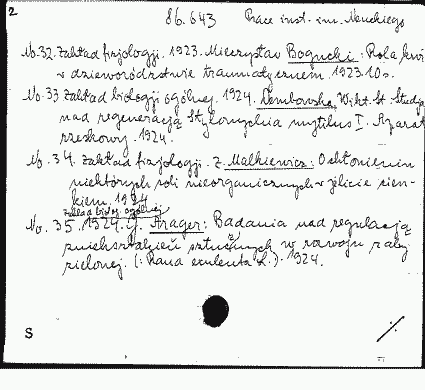 2
86.643 Prace inst. im. Nenckiego
No. 32. Zakład fizjologji. 1923. Mieczysław Bogucki: Rola krwi
w dzieworództwie traumatycznem. 1923. 10 s.
No. 33 Zakład biologji ogólnej. 1924. Dembowska, Wikt. St. Studja
nad regeneracją Stylonychia mytilus I. Aparat
rzęskowy. 1924.
No. 34. Zakład fizjologji. Z. Malkiewicz. O chłonieniu
niektórych soli nieorganicznych w jelicie cien-
kiem. 1924
Zakład biolog. ogólnej
No. 35. 1924. J. Prager: Badania nad regulacją
zniekształceń sztucznych w rozwoju żaby
zielonej. (: Rana esculenta L.). 1924.
S